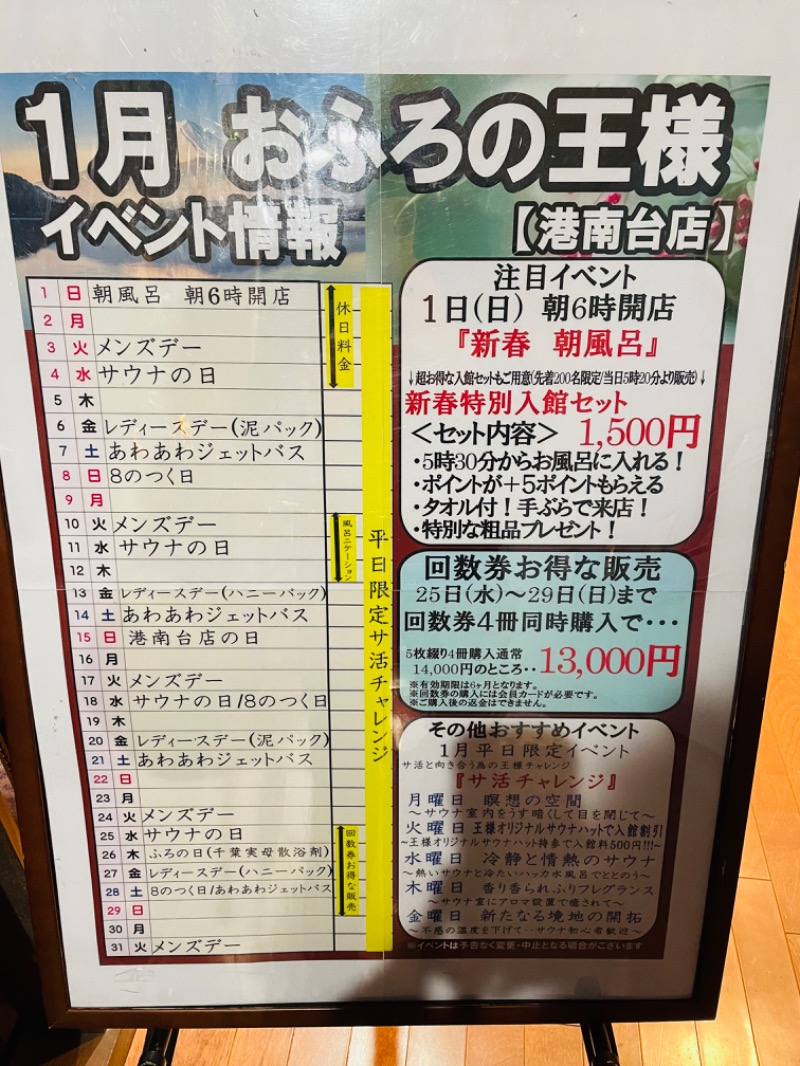 1月 おふろの王様
イベント情報
【港南台店】
1 日 朝風呂 朝6時開店
2 月
3 火 メンズデー
4 水 サウナの日
5 木
6 金 レディースデー(泥パック)
7 土 あわあわジェットバス
8 日 8のつく日
9 月
10 火 メンズデー
11 水 サウナの日
12 木
13 金 レディースデー(ハニーパック)
14 土 あわあわジェットバス
15 日 港南台店の日
16 月
17 火 メンズデー
18 水 サウナの日/8のつく日
19 木
20 金 レディースデー(泥パック)
21 土 あわあわジェットバス
22 日
23 月
24 火 メンズデー
25 水 サウナの日
26 木 ふろの日(千葉実母散浴剤)
27 金 レディースデー(ハニーパック)
28 土 8のつく日/あわあわジェットバス
29 日
30 月
31 火 メンズデー
休日料金
風呂ニケーション
回数券お得な販売
平日限定サ活チャレンジ
注目イベント
1日(日) 朝6時開店
『新春 朝風呂』
↓超お得な入館セットもご用意(先着200名限定/当日5時20分より販売)↓
新春特別入館セット
＜セット内容＞ 1,500円
・5時30分からお風呂に入れる！
・ポイントが＋5ポイントもらえる
・タオル付！手ぶらで来店！
・特別な粗品プレゼント！
回数券お得な販売
25日(水)～29日(日)まで
回数券4冊同時購入で・・・
5枚綴り4冊購入通常
14,000円のところ‥13,000円
※有効期限は6ヶ月となります。
※回数券の購入には会員カードが必要です。
※ご購入後の返金はできません。
その他おすすめイベント
1月平日限定イベント
サ活と向き合う為の王様チャレンジ
『サ活チャレンジ』
月曜日 瞑想の空間
～サウナ室内をうす暗くして目を閉じて～
火曜日 王様オリジナルサウナハットで入館割引
～王様オリジナルサウナハット持参で入館料500円!!!～
水曜日 冷静と情熱のサウナ
～熱いサウナと冷たいハッカ水風呂でととのう～
木曜日 香り香られふりフレグランス
～サウナ室にアロマ設置で癒されて～
金曜日 新たなる境地の開拓
～不感の温度を下げて‥サウナ初心者歓迎～
※イベントは予告なく変更・中止となる場合がございます